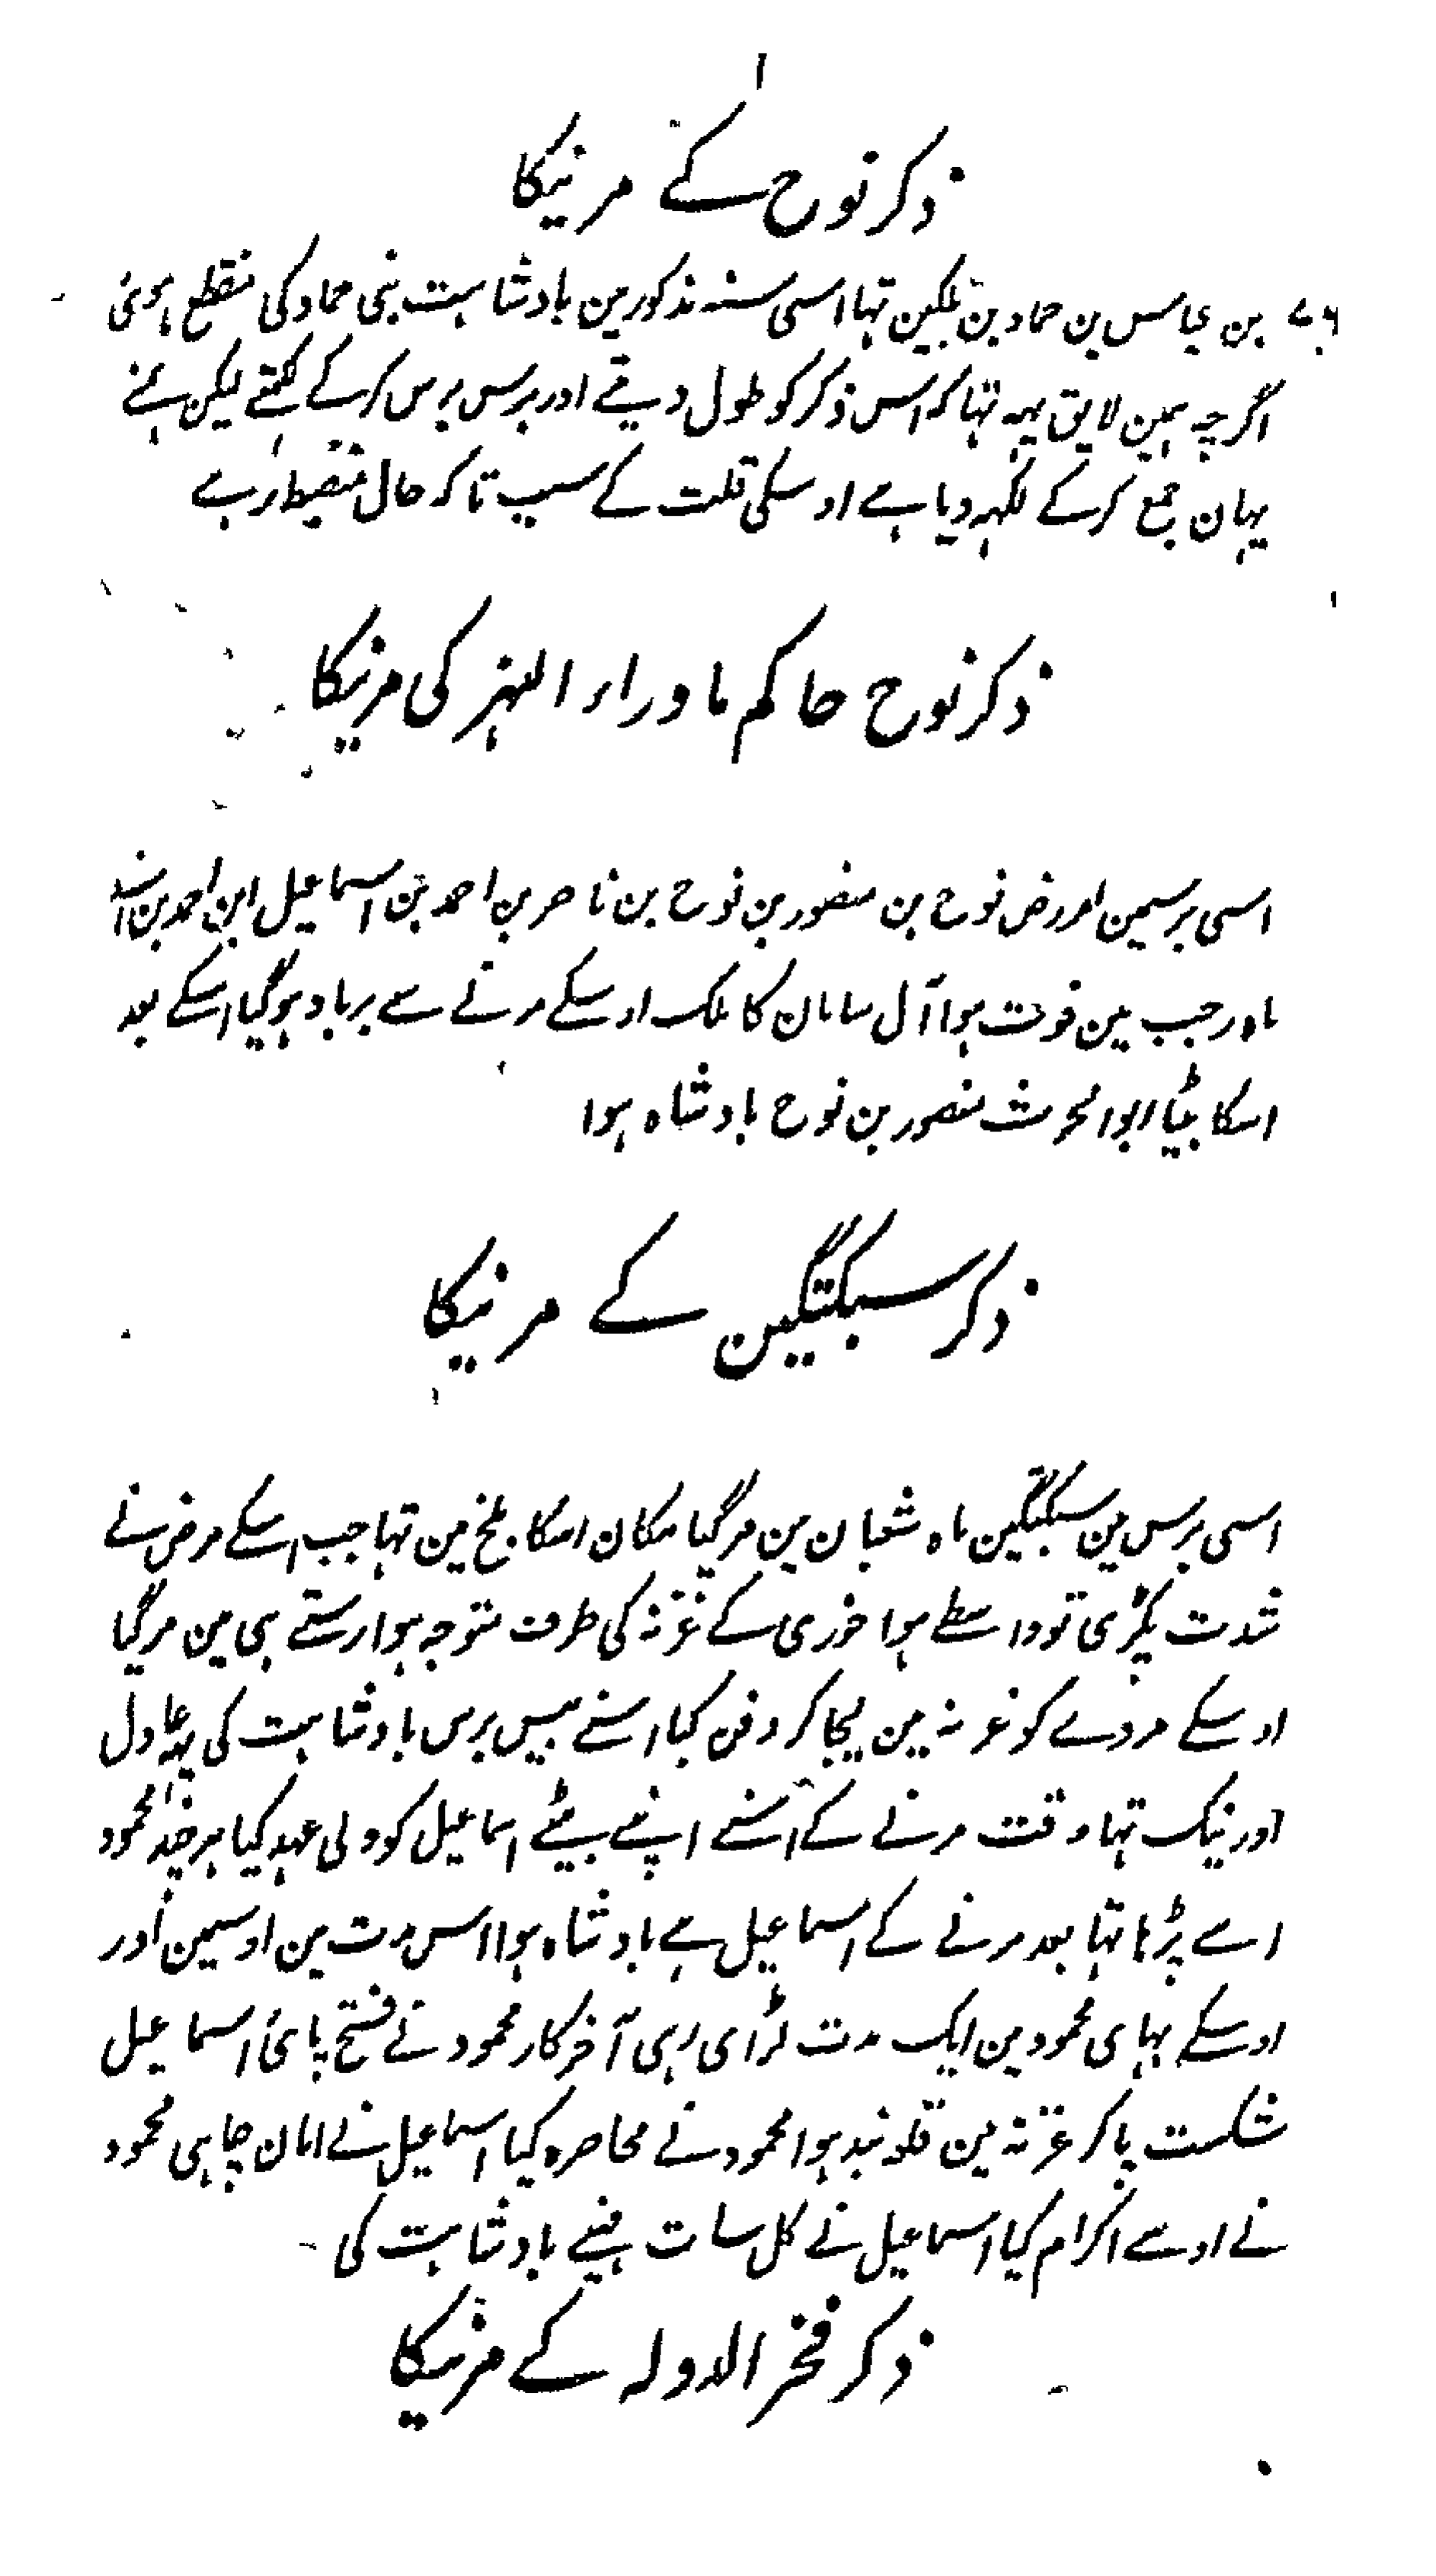 ذکر نوح کے مرنیکا
بن عباس بن حماد بن بلکین تہا اسی سنہ مذکور مین بادشاہت بنی حماد کی منقطع ہوئ
اگرچہ ہمین لایق یہہ تہا کہ اس ذکر کو طول دیتے اور برس برس کرکے لکہتے لیکن ہمنے
یہان جمع کرکے لکہہ دیا ہے اوسکی قلت کے سبب تاکہ حال منضبط رہے
ذکر نوح حاکم ماوراء النہر کی مرنیکا
اسی برسمین نوح بن منصور بن نوح بن ناصر بن احمد بن اسماعیل ابن احمد بن اسد
ماہ رجب مین فوت ہوا آل سامان کا ملک اوسکے مرنے سے برباد ہوگیا اسکے بعد
اسکا بیٹا ابو الحرث منصور بن نوح بادشاہ ہوا
ذکر سبکتگین کے مرنیکا
اسی برس مین سبکتگین ماہ شعبان مین مرگیا مکان اسکا بلخ مین تہا جب اسکے مرض نے
شدت پکڑی تو واسطے ہوا خوری کے غزنہ کی طرف متوجہ ہوا رستے ہی مین مرگیا
اوسکے مردے کو غزنہ مین لیجا کر دفن کیا اسنے بیس برس بادشاہت کی یہہ عادل
اور نیک تہا وقت مرنے کے اسنے اپنے بیٹے اسماعیل کو ولی عہد کیا ہرچند محمود
اسے بڑا تہا بعد مرنے کے اسماعیل ہے بادشاہ ہوا اس مدت مین اوسمین اور
اوسکے بہای محمود مین ایک مدت لڑای رہی آخرکار محمود نے فتح پائ اسماعیل
شکست پاکر غزنہ مین قلعہ بند ہوا محمود نے محاصرہ کیا اسماعیل نے امان چاہی محمود
نے اوسے اکرام کیا اسماعیل نے کل سات مہینے بادشاہت کی
ذکر فخر الدولہ کے مرنیکا